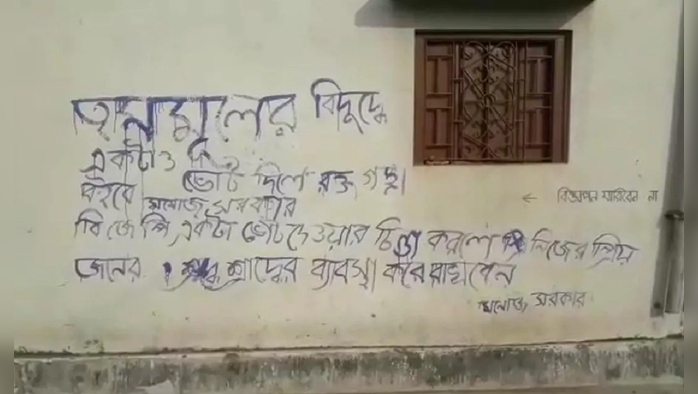 তৃনমূলের বিদুদ্ধে
একটাও
ভোট দিলে রক্ত গঙ্গা
বইবে মনোজ সরকার
বিজেপি একটা ভোট দেওয়ার চিন্তা করলে নিজের প্রিয়
জনের শ্রাদ্ধের ব্যবস্থা করে রাখবেন
মনোজ সরকার
← বিজ্ঞাপন মারিবেন না